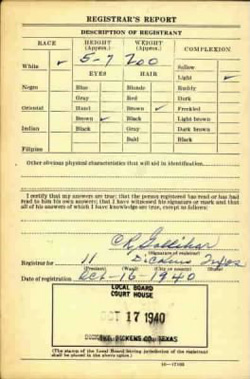 REGISTRAR'S REPORT
DESCRIPTION OF REGISTRANT
RACE HEIGHT (Approx.) WEIGHT (Approx.) COMPLEXION
5-7 200
White ✓ Sallow
EYES HAIR Light ✓
Negro Blue Blonde Ruddy
Gray Red Dark
Oriental Hazel Brown ✓ Freckled
Brown ✓ Black Light brown
Indian Black Gray Dark brown
Bald Black
Filipino
Other obvious physical characteristics that will aid in identification
I certify that my answers are true; that the person registered has read or has had
read to him his own answers; that I have witnessed his signature or mark and that
all of his answers of which I have knowledge are true, except as follows:
(Signature of registrar)
Registrar for 11 Dickens Texas
(Precinct) (City or county) (State)
Date of registration Oct-16-1940
LOCAL BOARD
COURT HOUSE
OCT 17 1940
DICKENS CO., TEXAS
(The stamp of the Local Board having jurisdiction of the registrant
shall be placed in the above space.)